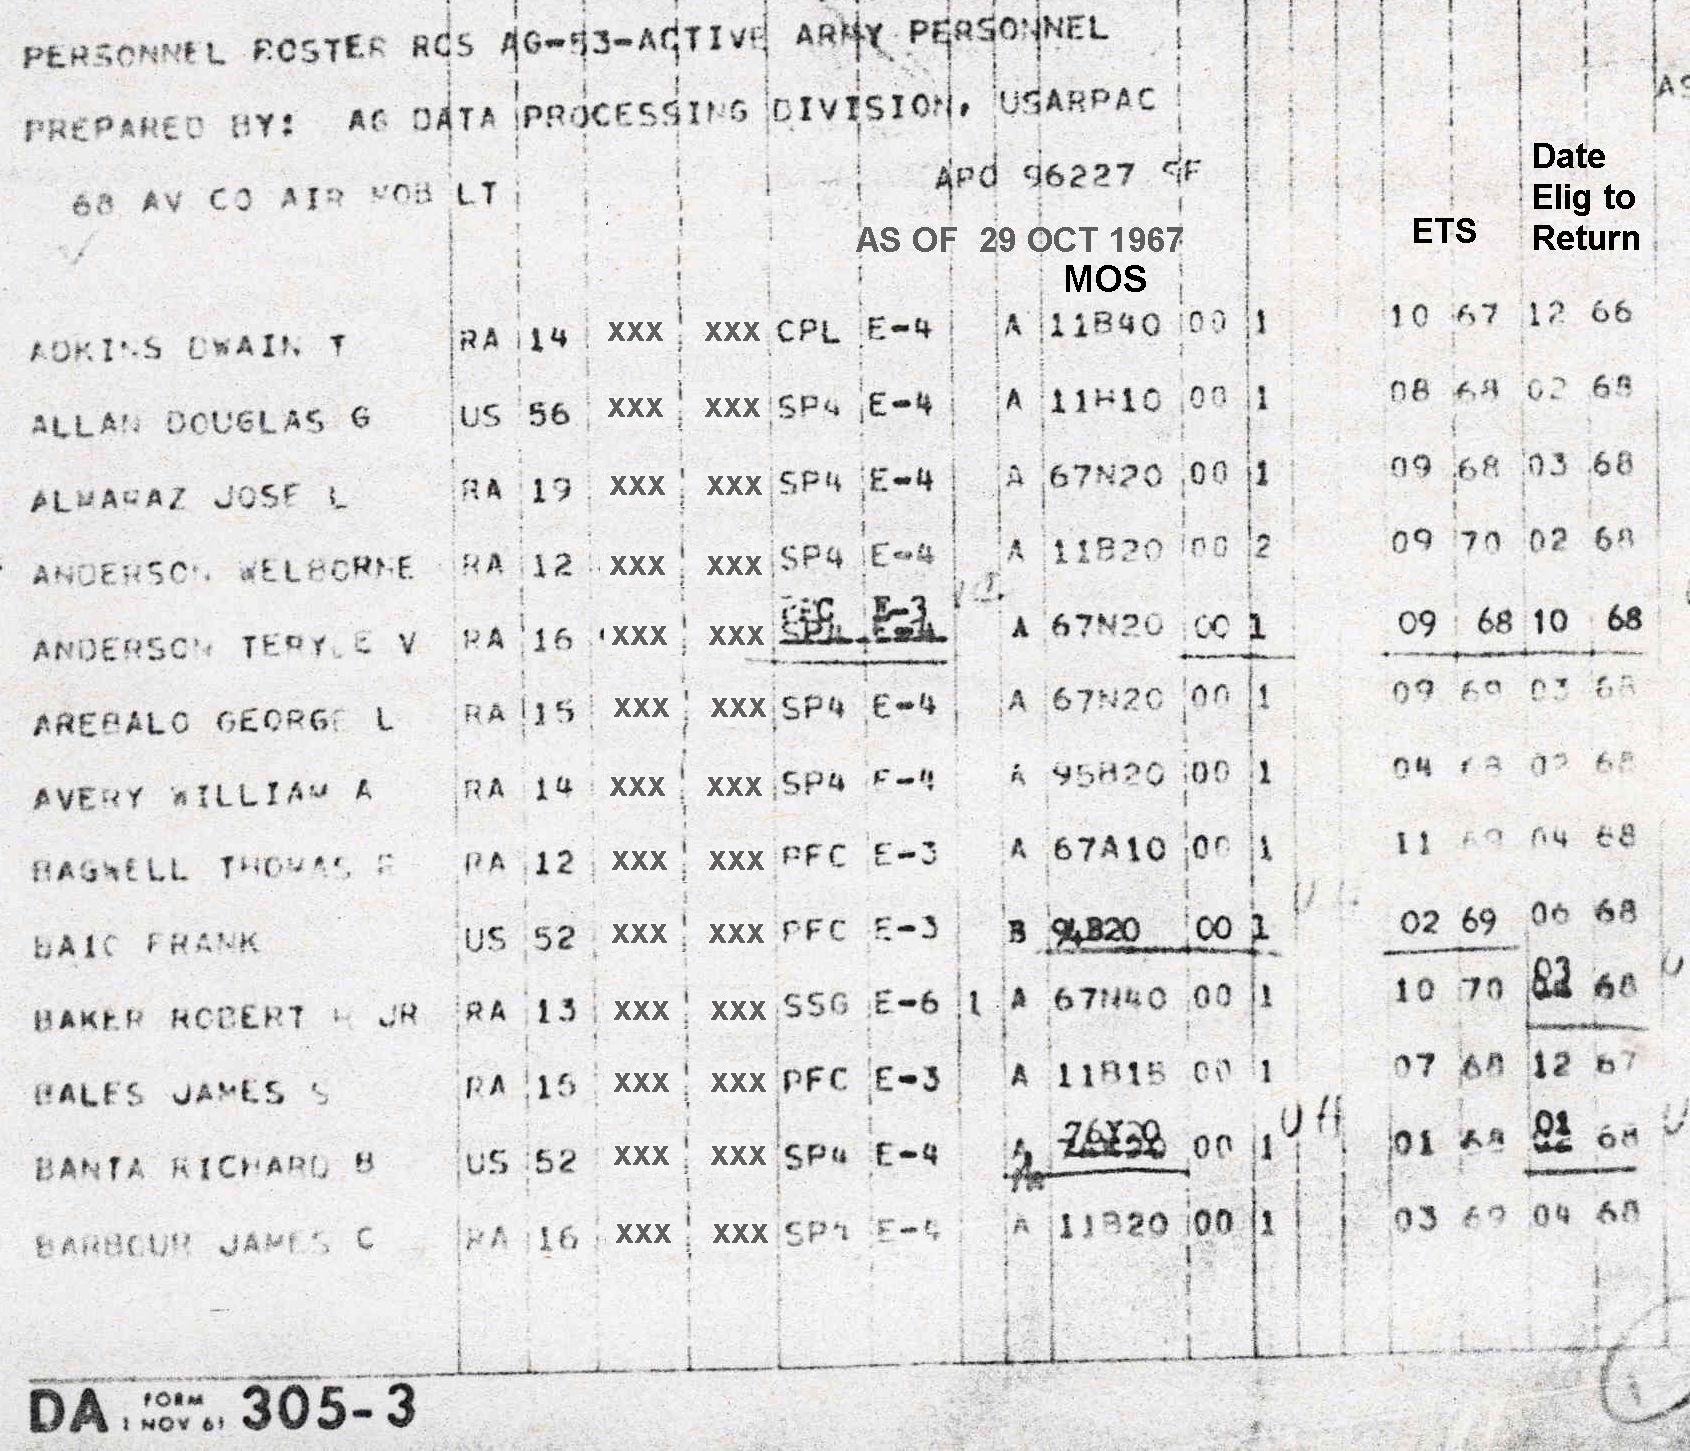 PERSONNEL ROSTER RCS AG-53-ACTIVE ARMY PERSONNEL
AS
PREPARED BY: AG DATA PROCESSING DIVISION, USARPAC
68 AV CO AIR MOB LT APO 96227 SF
Date Elig to Return
ETS
AS OF 29 OCT 1967
MOS
ADKINS DWAIN T RA 14 XXX XXX CPL E-4 A 11B40 00 1 10 67 12 66
ALLAN DOUGLAS G US 56 XXX XXX SP4 E-4 A 11H10 00 1 08 68 02 68
ALMARAZ JOSE L RA 19 XXX XXX SP4 E-4 A 67N20 00 1 09 68 03 68
ANDERSON WELBORNE RA 12 XXX XXX SP4 E-4 A 11B20 00 2 09 70 02 68
ANDERSON TERYLE V RA 16 XXX XXX PFC E-3 A 67N20 00 1 09 68 10 68
AREBALO GEORGE L RA 15 XXX XXX SP4 E-4 A 67N20 00 1 09 69 03 68
AVERY WILLIAM A RA 14 XXX XXX SP4 E-4 A 95B20 00 1 04 68 02 68
BAGWELL THOMAS RA 12 XXX XXX PFC E-3 A 67A10 00 1 11 69 04 68
BAIC FRANK US 52 XXX XXX PFC E-3 B 94B20 00 1 02 69 06 68
BAKER ROBERT H JR RA 13 XXX XXX SSG E-6 1 A 67N40 00 1 10 70 03 68
BALES JAMES S RA 16 XXX XXX PFC E-3 A 11B1B 00 1 07 68 12 67
BANTA RICHARD B US 52 XXX XXX SP4 E-4 A 76Y20 00 1 UH 01 68 01 68
BARBOUR JAMES C RA 16 XXX XXX SP4 E-4 A 11B20 00 1 03 69 04 68
DA FORM 1 NOV 61 305-3